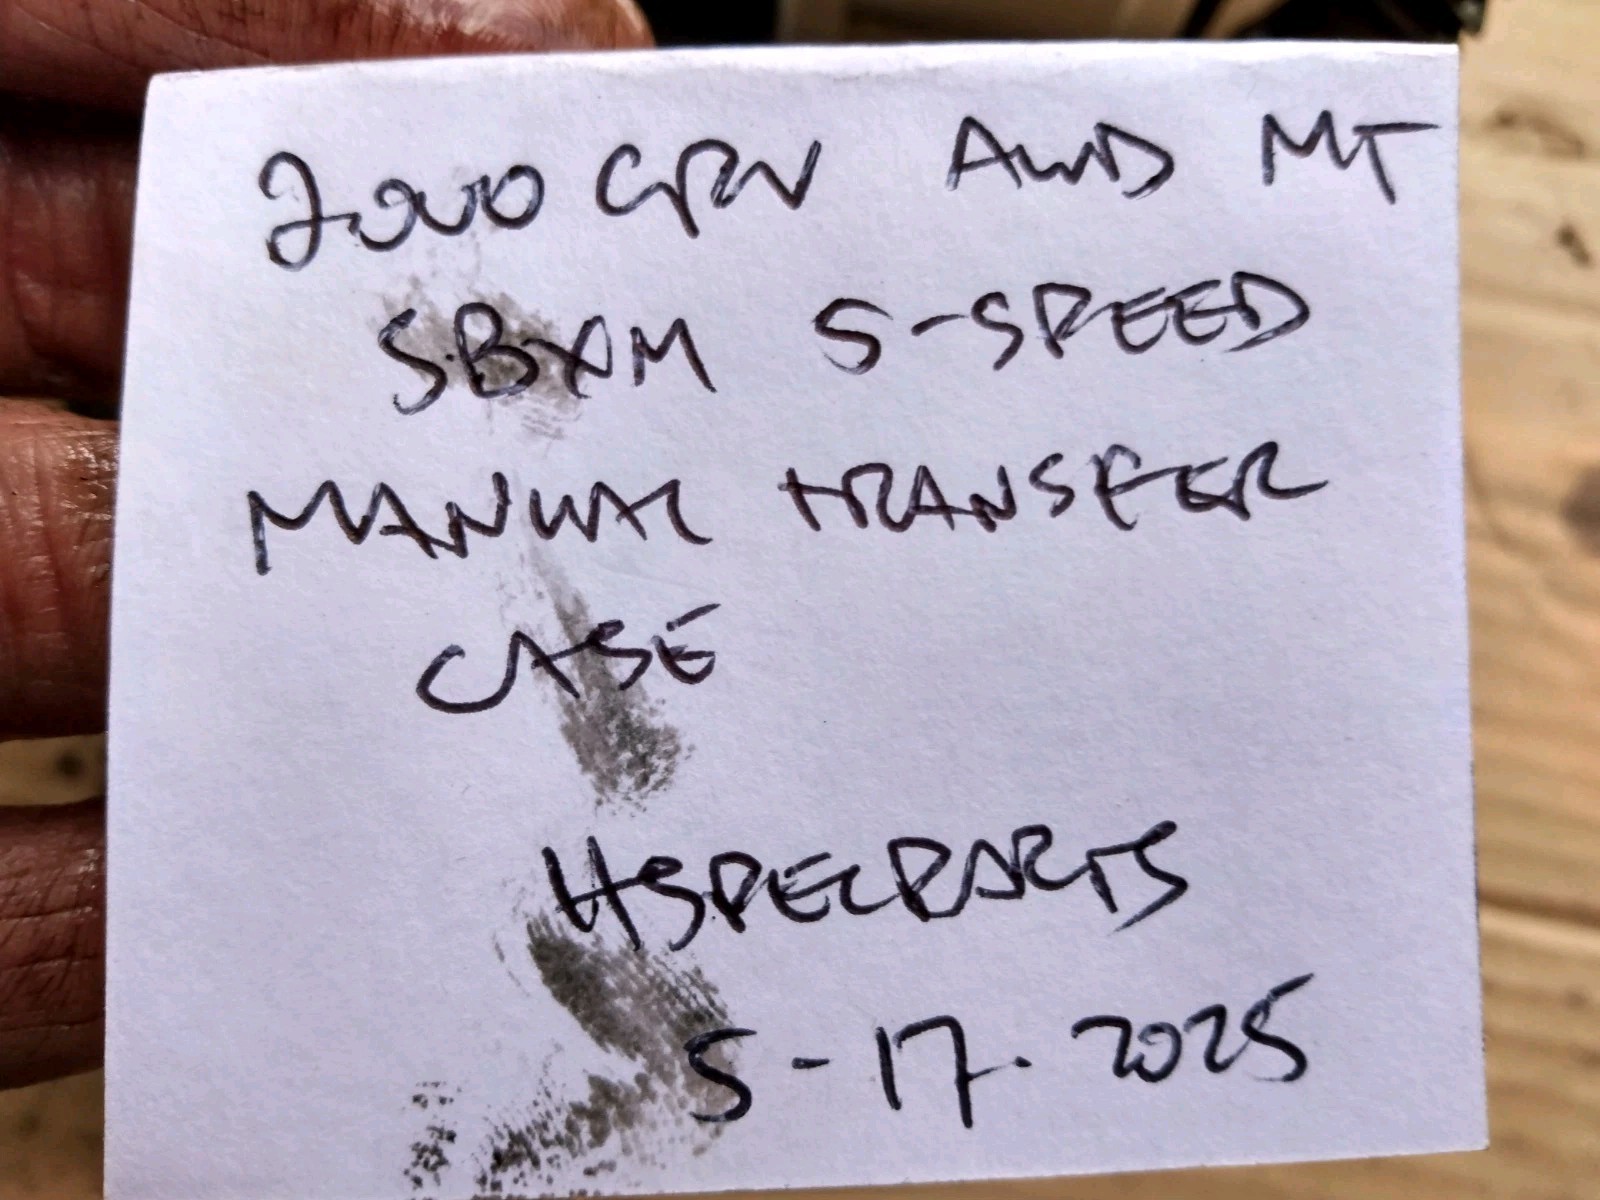 2000 CRV AWD MT
SBXM 5-SPEED
MANUAL TRANSFER
CASE
HSPECPARTS
5-17-2025